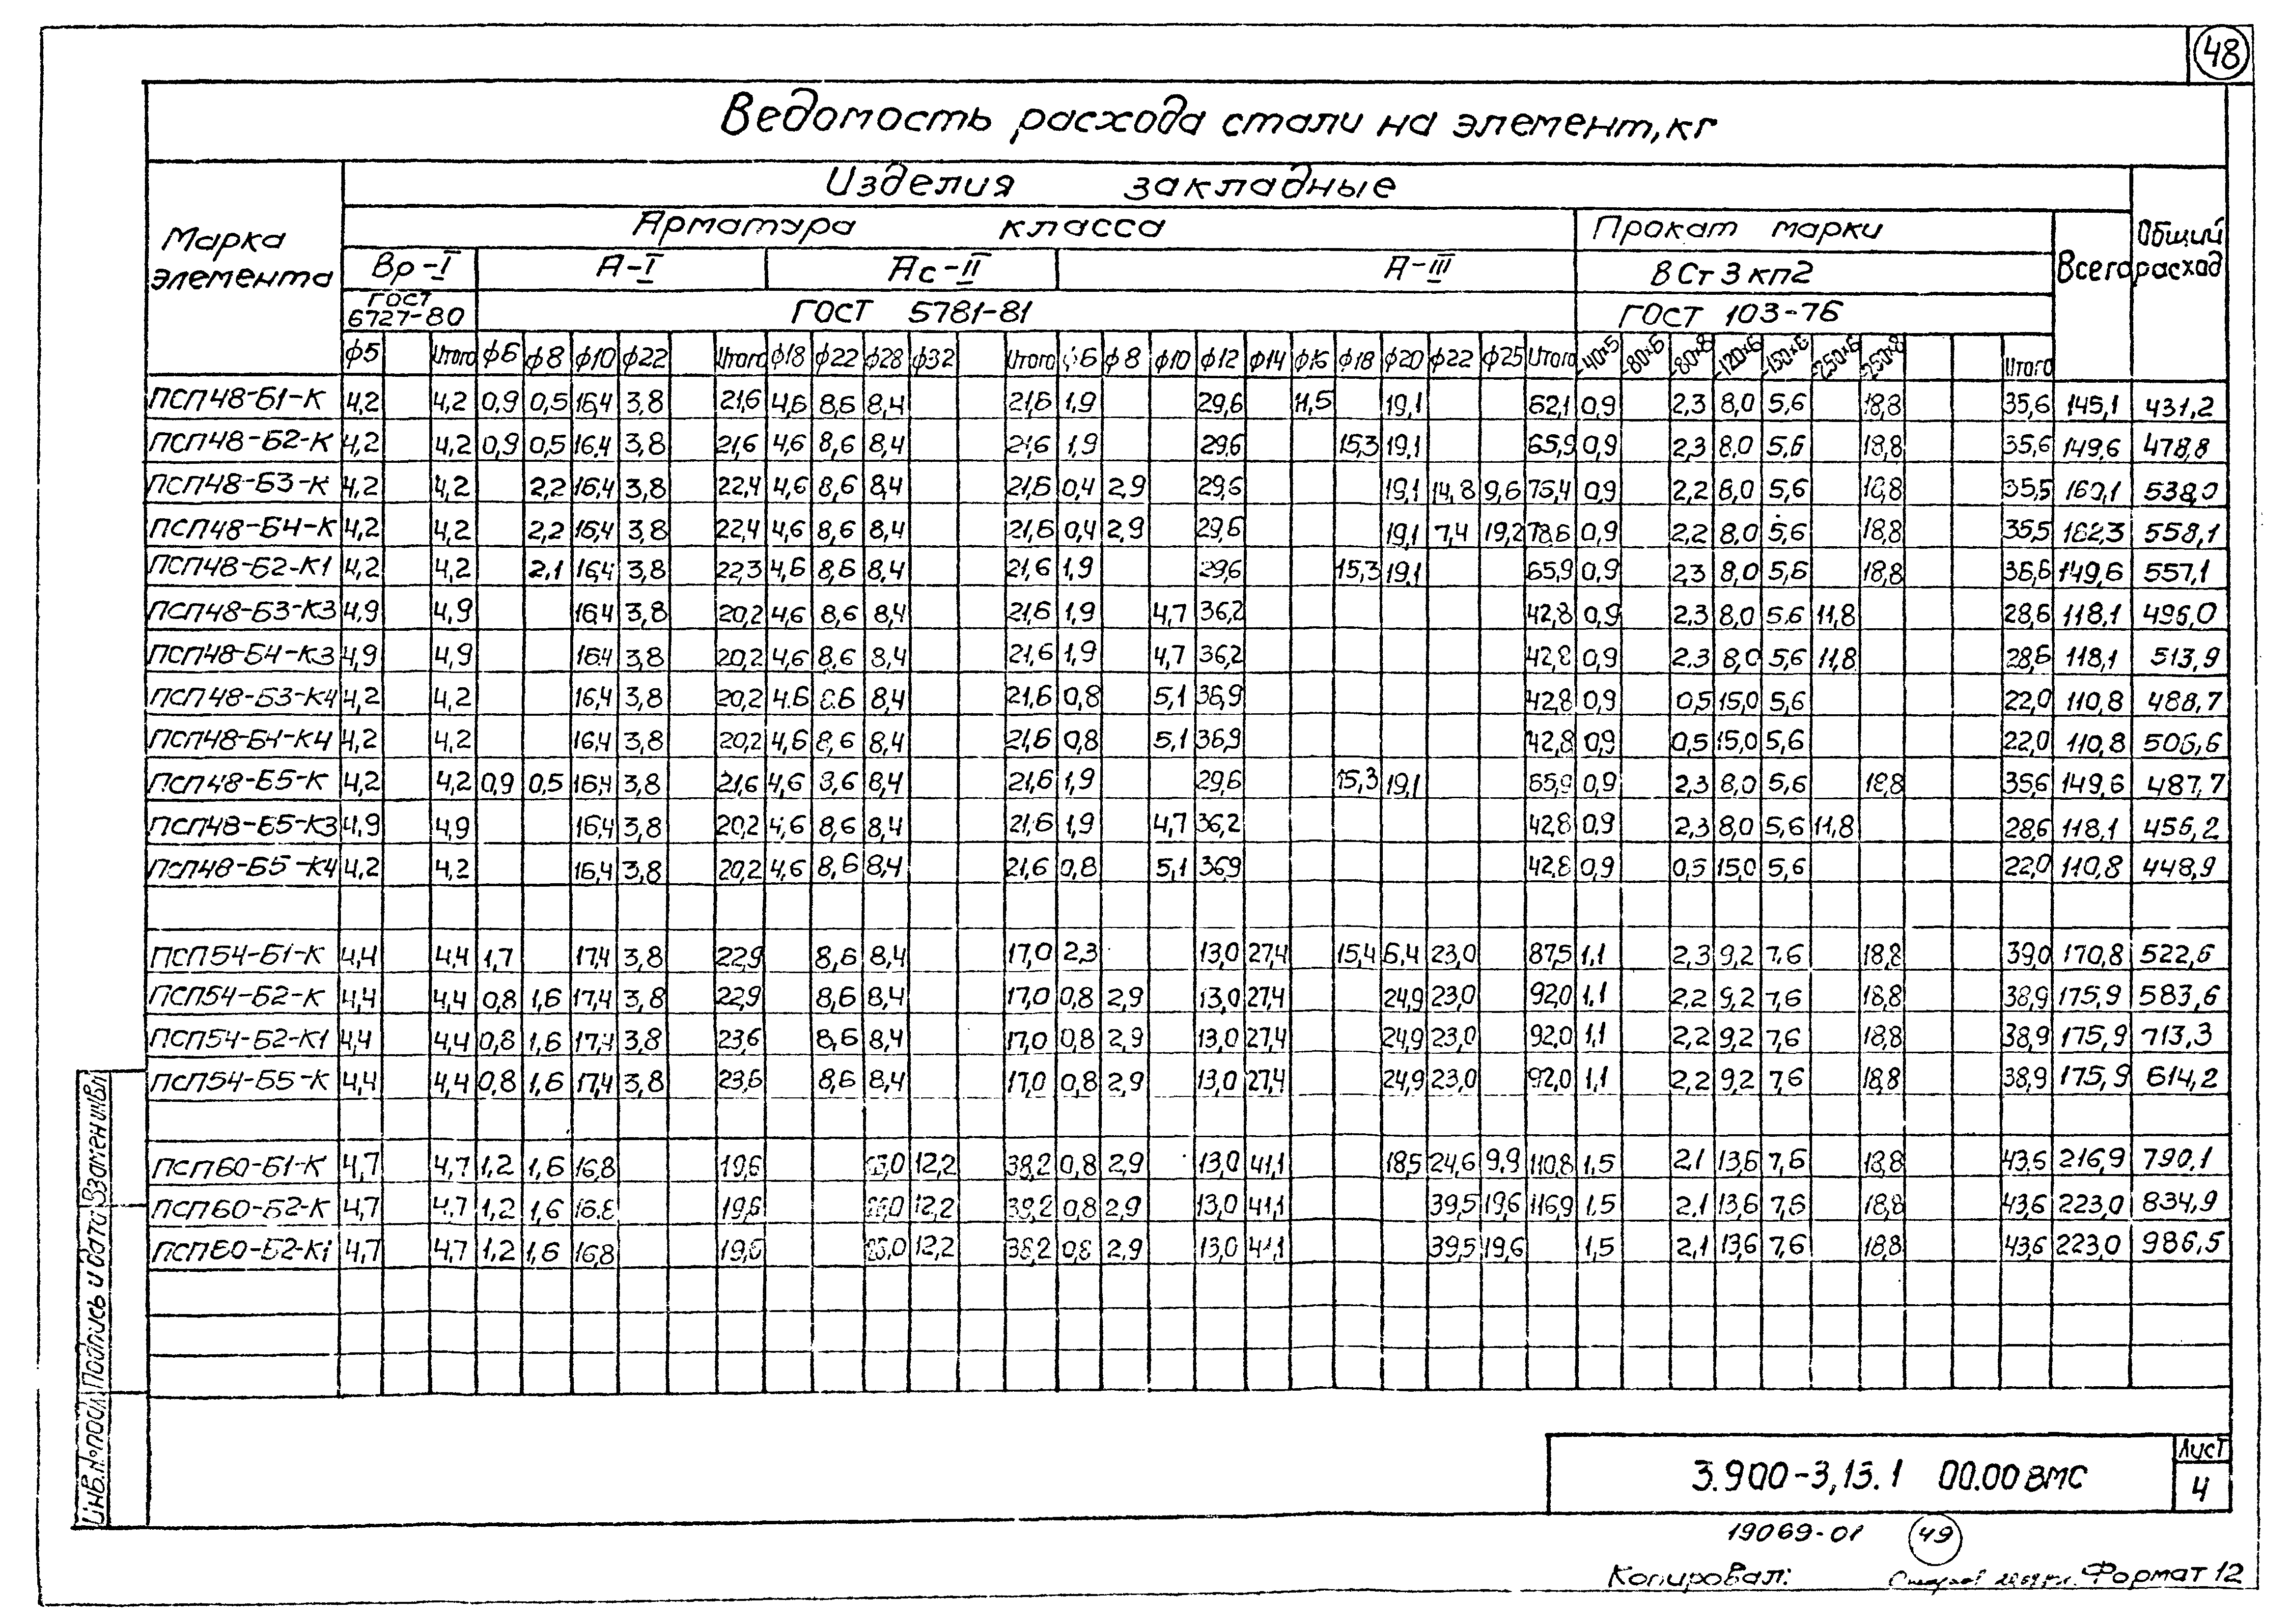 48
Ведомость расхода стали на элемент, кг
Марка элемента
Изделия закладные
Всего
Общий расход
Арматура класса
Прокат марки
Вр-I
А-I
Ас-II
А-III
ВСт3кп2
ГОСТ 6727-80
ГОСТ 5781-81
ГОСТ 103-76
ф5 Итого ф6 ф8 ф10 ф22 Итого ф18 ф22 ф28 ф32 Итого ф6 ф8 ф10 ф12 ф14 ф16 ф18 ф20 ф22 ф25 Итого -40×5 -80×6 -80×8 -120×6 -150×6 -250×6 -250×8 Итого
ПСП48-Б1-К 4,2 4,2 0,9 0,5 16,4 3,8 21,6 4,6 8,6 8,4 21,6 1,9 29,6 11,5 19,1 62,1 0,9 2,3 8,0 5,6 18,8 35,6 145,1 431,2
ПСП48-Б2-К 4,2 4,2 0,9 0,5 16,4 3,8 21,6 4,6 8,6 8,4 21,6 1,9 29,6 15,3 19,1 65,9 0,9 2,3 8,0 5,6 18,8 35,6 149,6 478,8
ПСП48-Б3-К 4,2 4,2 2,2 16,4 3,8 22,4 4,6 8,6 8,4 21,6 0,4 2,9 29,6 19,1 14,8 9,6 76,4 0,9 2,2 8,0 5,6 18,8 35,5 160,1 538,0
ПСП48-Б4-К 4,2 4,2 2,2 16,4 3,8 22,4 4,6 8,6 8,4 21,6 0,4 2,9 29,6 19,1 7,4 19,2 78,6 0,9 2,2 8,0 5,6 18,8 35,5 162,3 558,1
ПСП48-Б2-К1 4,2 4,2 2,1 16,4 3,8 22,3 4,6 8,6 8,4 21,6 1,9 29,6 15,3 19,1 65,9 0,9 2,3 8,0 5,6 18,8 149,6 557,1
ПСП48-Б3-К3 4,9 4,9 16,4 3,8 20,2 4,6 8,6 8,4 21,6 1,9 4,7 36,2 42,8 0,9 2,3 8,0 5,6 11,8 28,6 118,1 496,0
ПСП48-Б4-К3 4,9 4,9 16,4 3,8 20,2 4,6 8,6 8,4 21,6 1,9 4,7 36,2 42,8 0,9 2,3 8,0 5,6 11,8 28,6 118,1 513,9
ПСП48-Б3-К4 4,2 4,2 16,4 3,8 20,2 4,6 8,6 8,4 21,6 0,8 5,1 36,9 42,8 0,9 0,5 15,0 5,6 22,0 110,8 488,7
ПСП48-Б4-К4 4,2 4,2 16,4 3,8 20,2 4,6 8,6 8,4 21,6 0,8 5,1 36,9 42,8 0,9 0,5 15,0 5,6 22,0 110,8 506,6
ПСП48-Б5-К 4,2 4,2 0,9 0,5 16,4 3,8 21,6 4,6 8,6 8,4 21,6 1,9 29,6 15,3 19,1 65,9 0,9 2,3 8,0 5,6 18,8 35,6 149,6 487,7
ПСП48-Б5-К3 4,9 4,9 16,4 3,8 20,2 4,6 8,6 8,4 21,6 1,9 4,7 36,2 42,8 0,9 2,3 8,0 5,6 11,8 28,6 118,1 456,2
ПСП48-Б5-К4 4,2 4,2 16,4 3,8 20,2 4,6 8,6 8,4 21,6 0,8 5,1 36,9 42,8 0,9 0,5 15,0 5,6 22,0 110,8 448,9
ПСП54-Б1-К 4,4 4,4 1,7 17,4 3,8 22,9 8,6 8,4 17,0 2,3 13,0 27,4 15,4 6,4 23,0 87,5 1,1 2,3 9,2 7,6 18,8 39,0 170,8 522,6
ПСП54-Б2-К 4,4 4,4 0,8 1,6 17,4 3,8 22,9 8,6 8,4 17,0 0,8 2,9 13,0 27,4 24,9 23,0 92,0 1,1 2,2 9,2 7,6 18,8 38,9 175,9 583,6
ПСП54-Б2-К1 4,4 4,4 0,8 1,6 17,4 3,8 23,6 8,6 8,4 17,0 0,8 2,9 13,0 27,4 24,9 23,0 92,0 1,1 2,2 9,2 7,6 18,8 38,9 175,9 713,3
ПСП54-Б5-К 4,4 4,4 0,8 1,6 17,4 3,8 23,6 8,6 8,4 17,0 0,8 2,9 13,0 27,4 24,9 23,0 92,0 1,1 2,2 9,2 7,6 18,8 38,9 175,9 614,2
ПСП60-Б1-К 4,7 4,7 1,2 1,6 16,8 19,6 12,2 38,2 0,8 2,9 13,0 41,1 18,5 24,6 9,9 110,8 1,5 2,1 13,6 7,6 18,8 43,6 216,9 790,1
ПСП60-Б2-К 4,7 4,7 1,2 1,6 16,8 19,6 12,2 38,2 0,8 2,9 13,0 41,1 39,5 19,6 116,9 1,5 2,1 13,6 7,6 18,8 43,6 223,0 834,9
ПСП60-Б2-К1 4,7 4,7 1,2 1,6 16,8 19,6 12,2 38,2 0,8 2,9 13,0 41,1 39,5 19,6 1,5 2,1 13,6 7,6 18,8 43,6 223,0 986,5
Инв.№подл. Подпись и дата Взамен инв.№
3.900-3,13.1 00.00ВМС
Лист
4
19069-01 49
Копировал: Формат 12